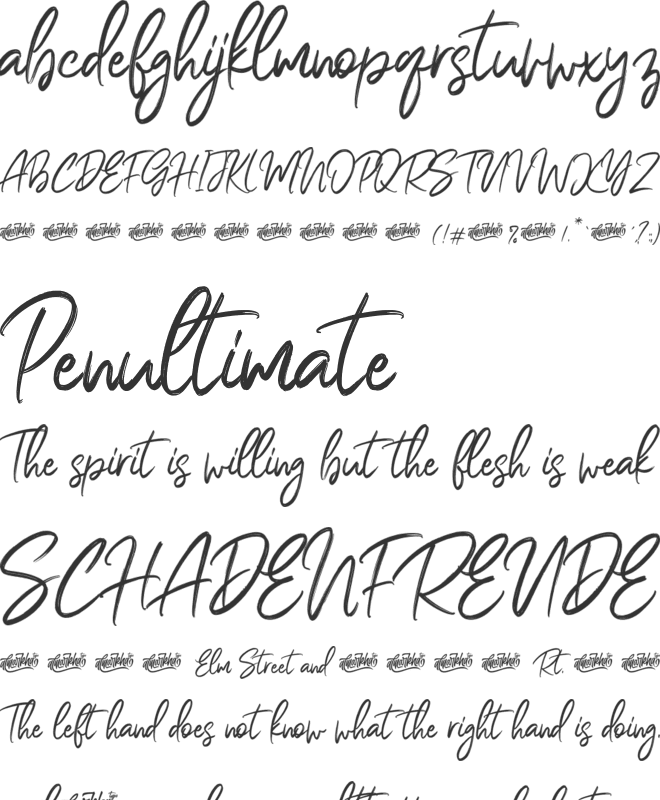 abcdefghijklmnopqrstuvwxyz
ABCDEFGHIJKLMNOPQRSTUVWXYZ
(!# % !.*` '?:;)
Penultimate
The spirit is willing but the flesh is weak
SCHADENFREUDE
Elm Street and Rt.
The left hand does not know what the right hand is doing.